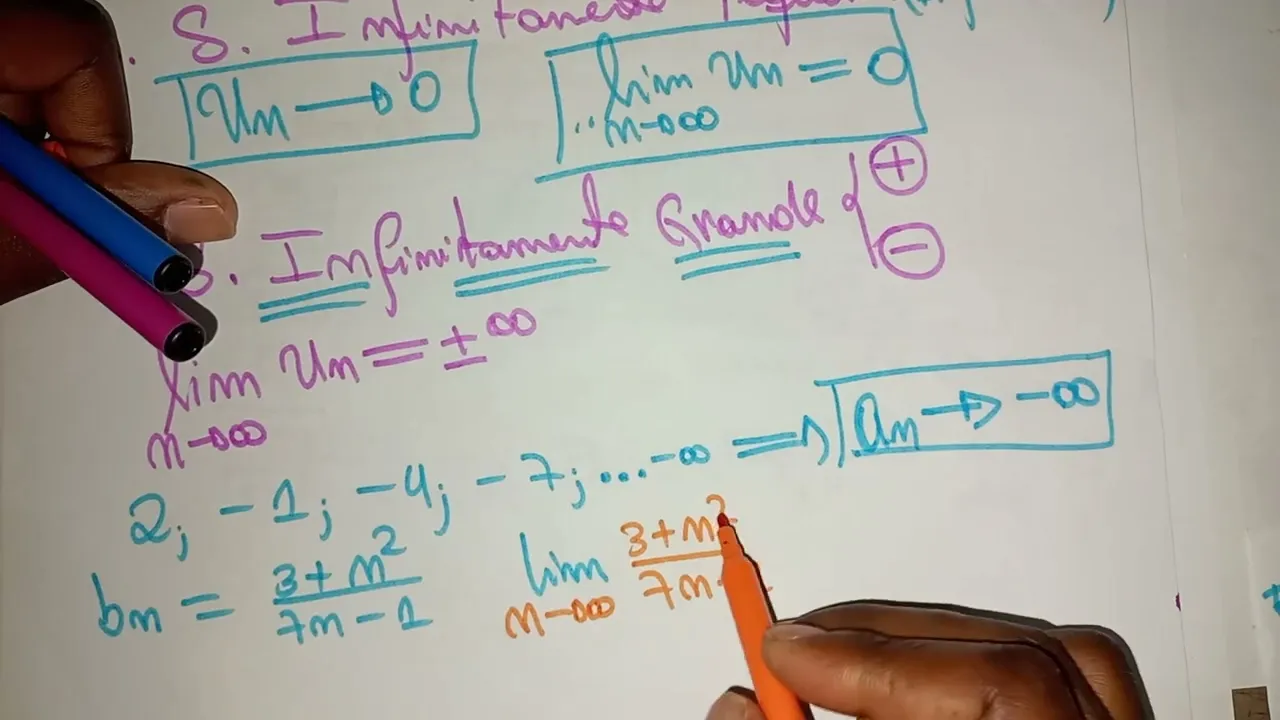 S. Infinitamente
Un → 0
lim Un = 0
n→∞
S. Infinitamente Grande { + −
lim Un = ±∞
n→∞
2; -1; -4; -7; ... -∞ ⇒ an → -∞
bn = 3+n² / 7n-1
lim 3+n² / 7n
n→∞